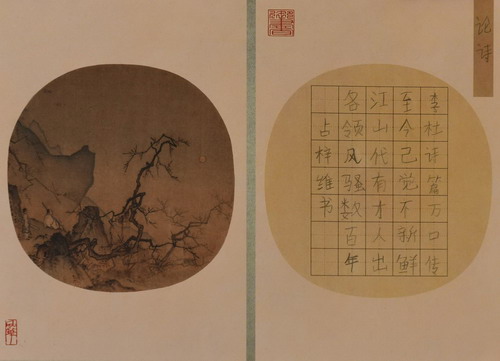 记诗
李杜诗篇万口传
至今已觉不新鲜
江山代有才人出
各领风骚数百年
占梓维书